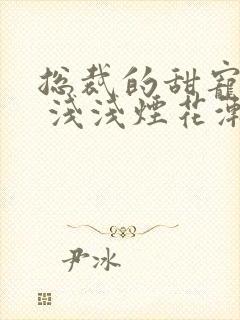 总裁的甜宠
浅浅烟花
尹冰